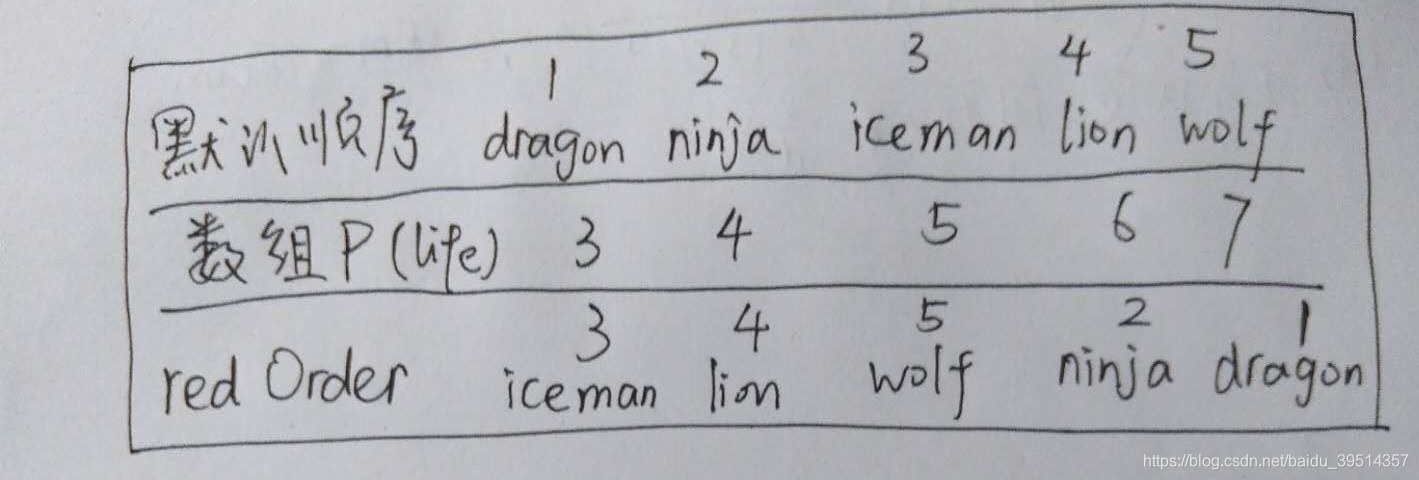 1 2 3 4 5
默认顺序 dragon ninja iceman lion wolf
数组P(life) 3 4 5 6 7
3 4 5 2 1
red Order iceman lion wolf ninja dragon
https://blog.csdn.net/baidu_39514357